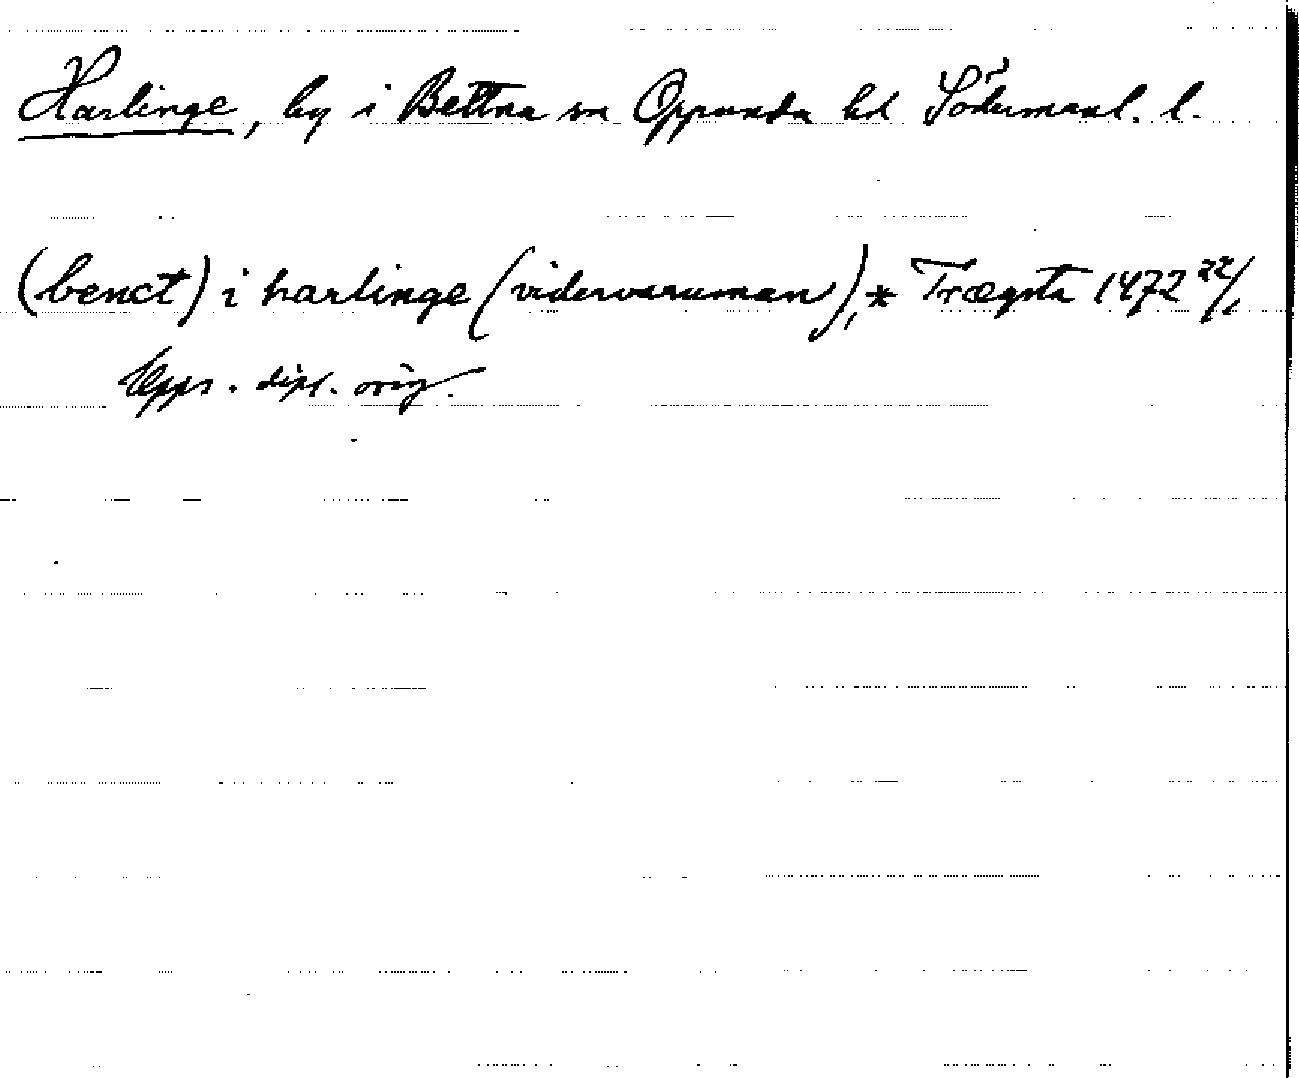 Harlinge, by i Bettna sn Oppunda hd Södermanl. l.
(benct) i harlinge (vidervaruman), * Trægsta 1472 22/1
Upps. dipl. orig.